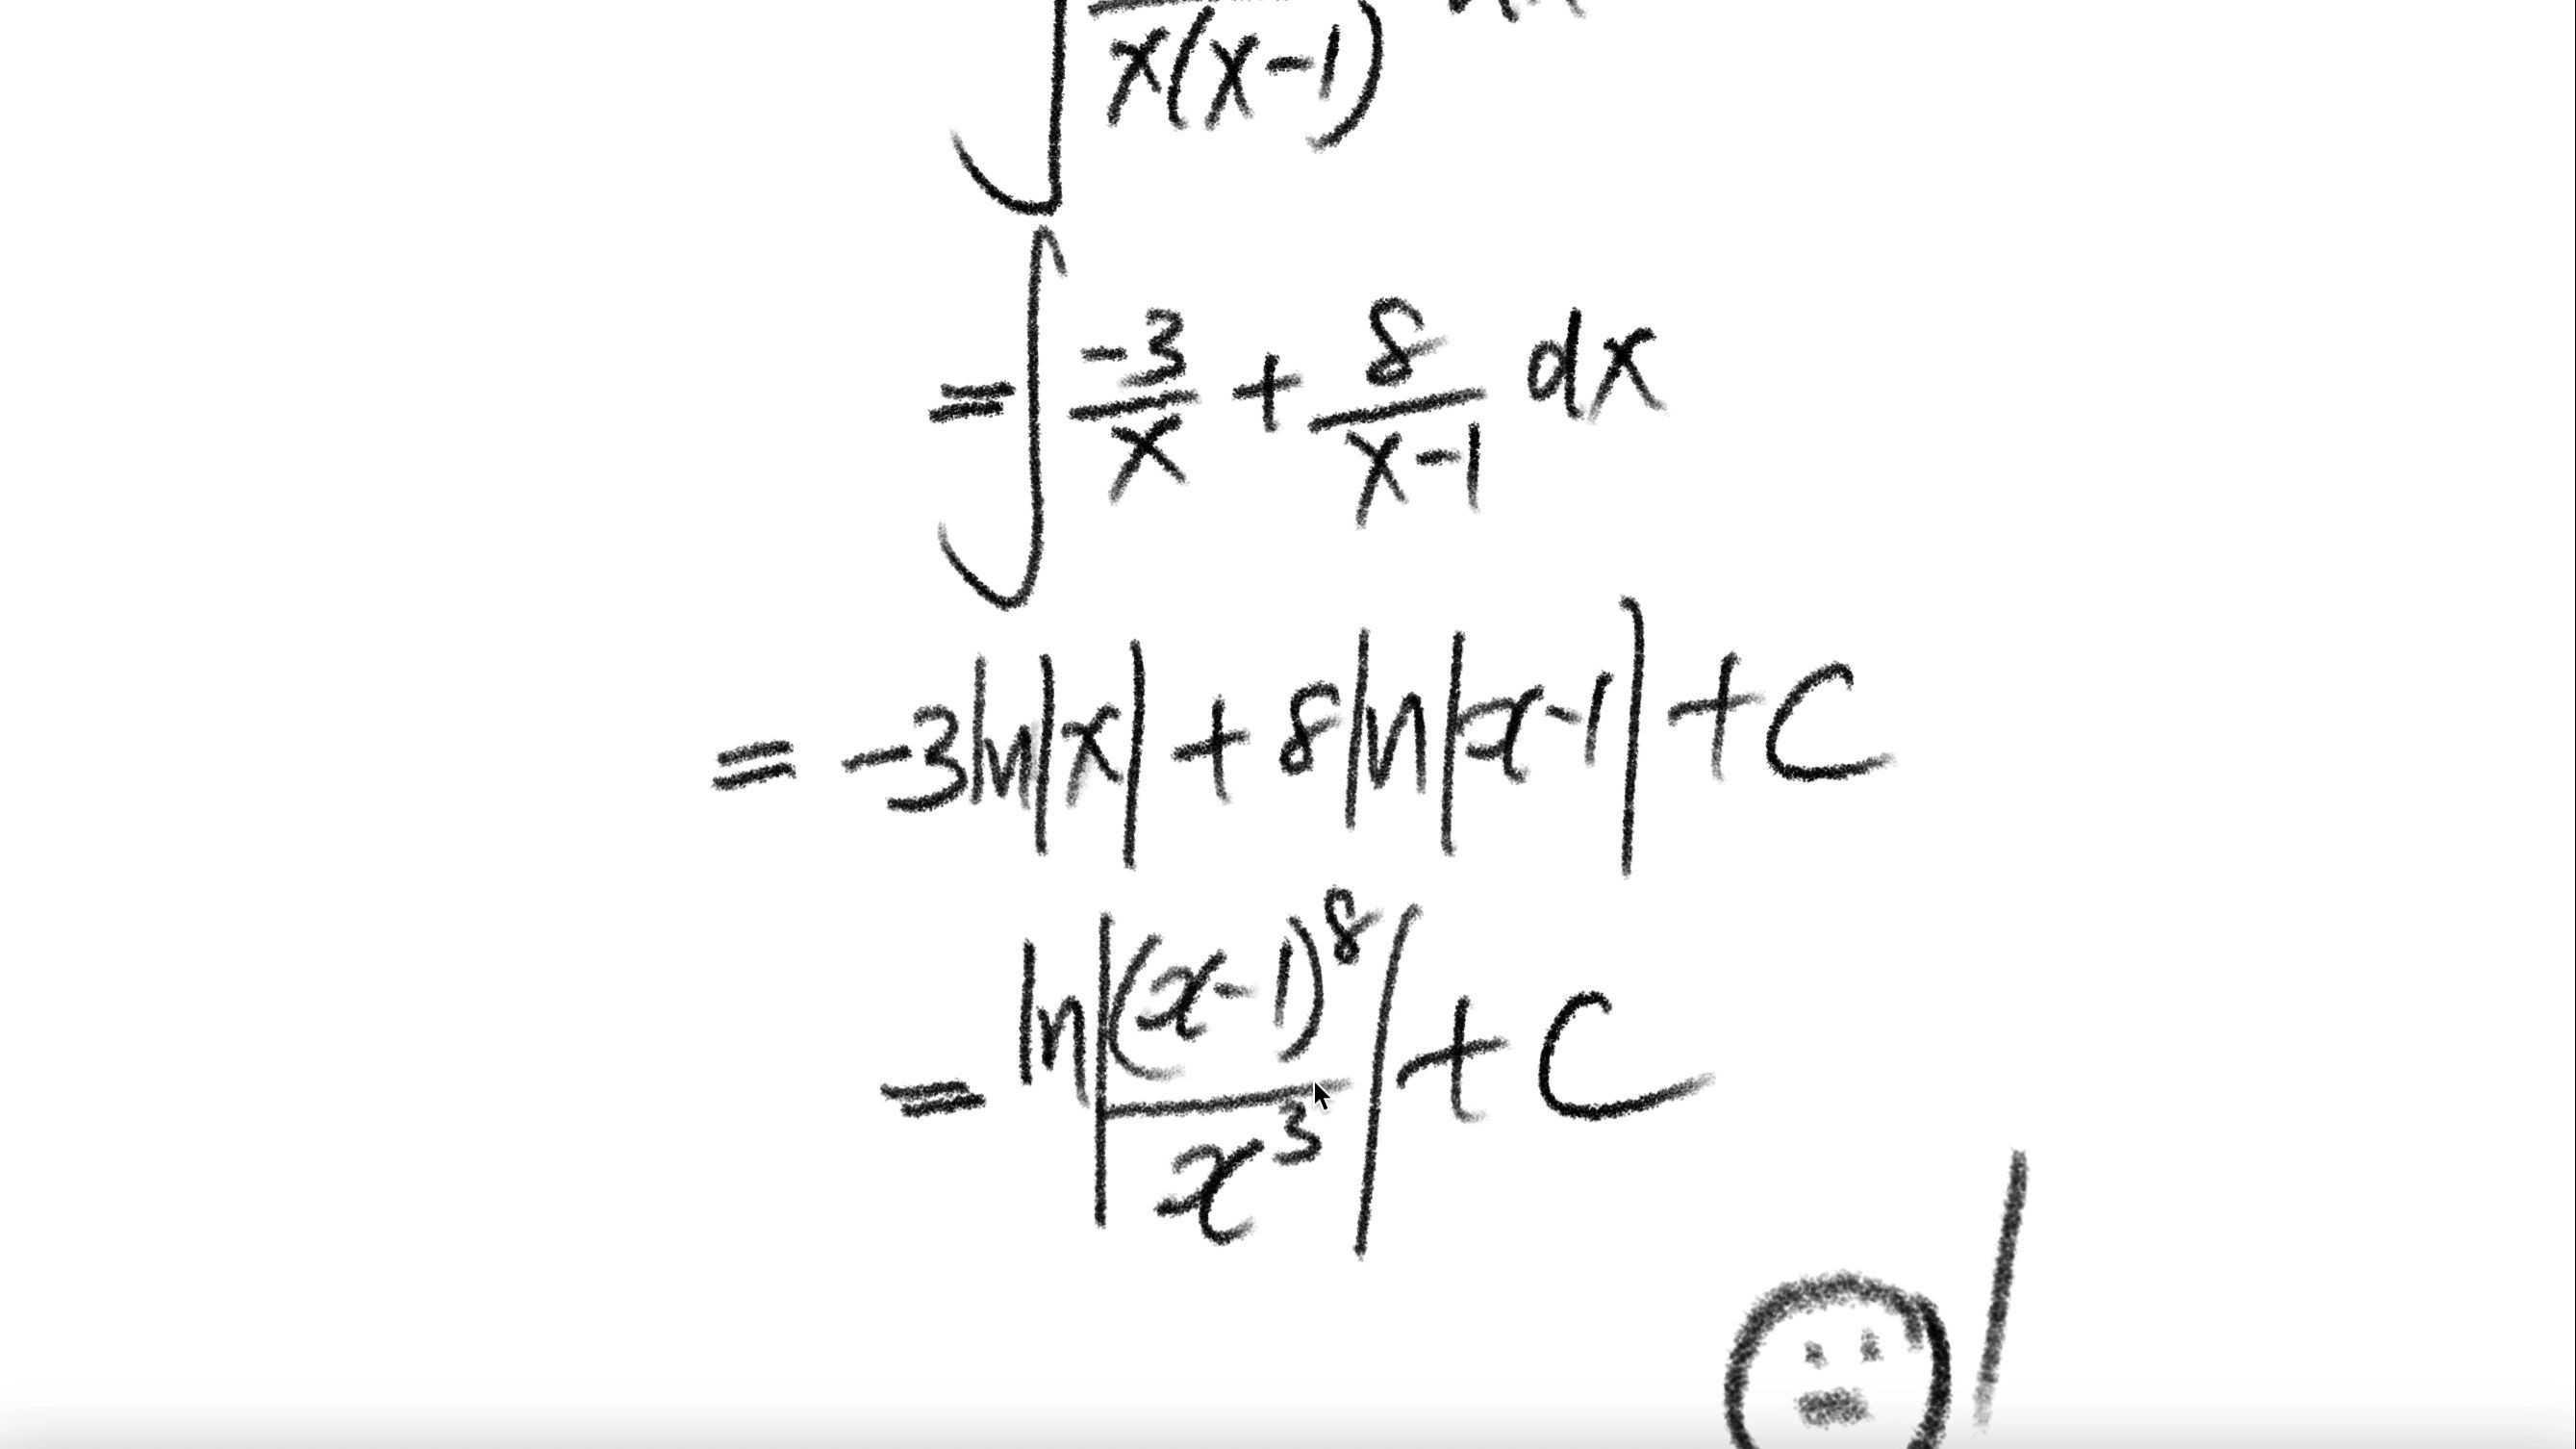 ∫ x(x-1)
= ∫ -3/x + 8/(x-1) dx
= -3ln|x| + 8ln|x-1| + C
= ln|(x-1)^8/x^3| + C